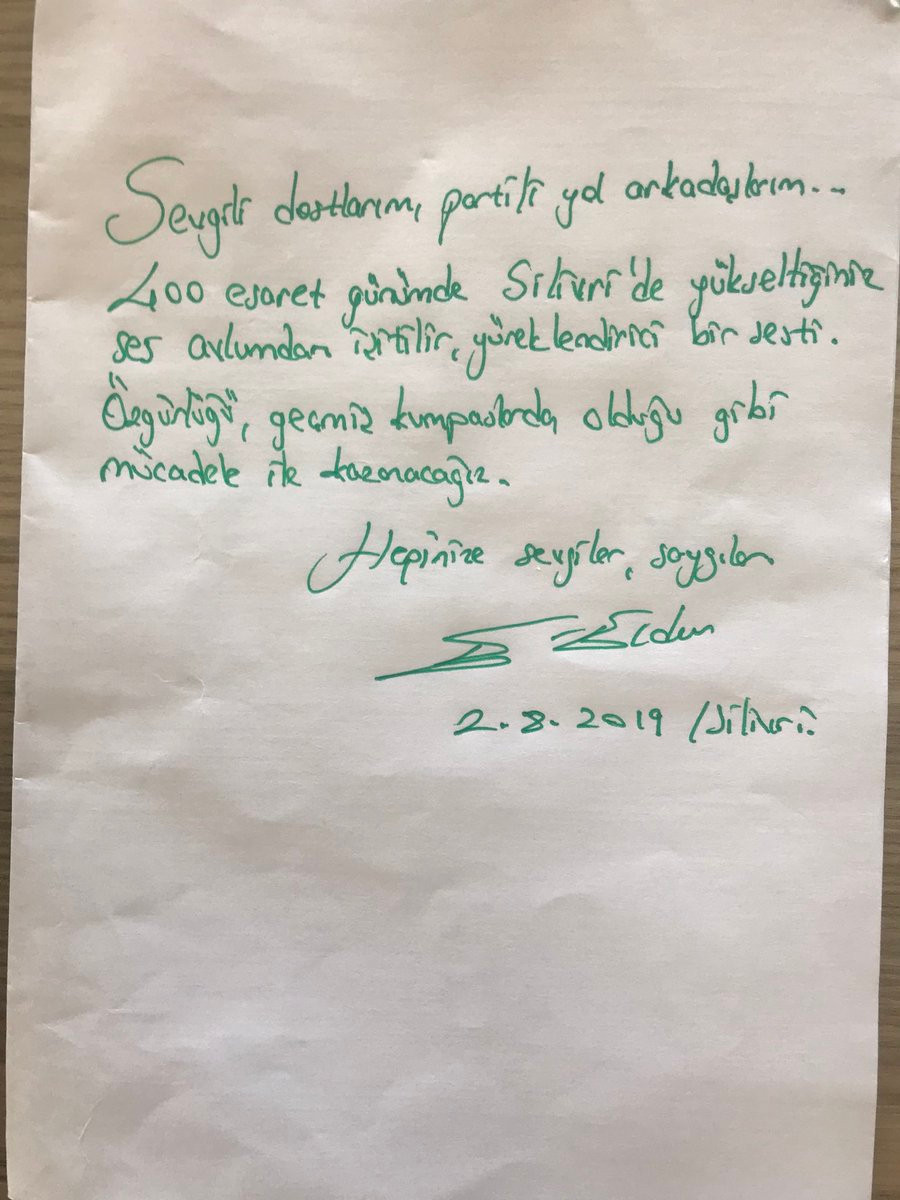 Sevgili dostlarım, partili yol arkadaşlarım...
400 esaret günümde Silivri'de yükselttiğiniz
ses avlumdan işitilir, yüreklendirici bir sesti.
Özgürlüğü, geçmiş kumpaslarda olduğu gibi
mücadele ile kazanacağız.
Hepinize sevgiler, saygılar
E. Erdem
2.8.2019 / Silivri